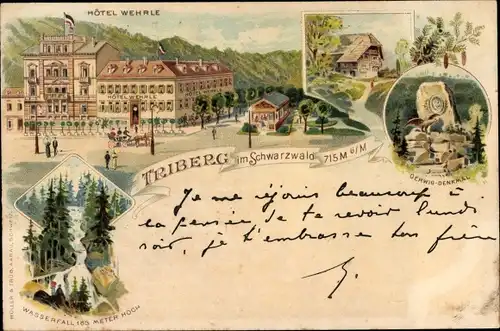 HÔTEL WEHRLE
TRIBERG im Schwarzwald 715 M ü/M
GERWIG-DENKMAL
Je me réjouis beaucoup à
la pensée de te revoir lundi
soir, je t'embrasse ton frère
WASSERFALL 163 METER HOCH
MÜLLER & TRÜB, AARAU